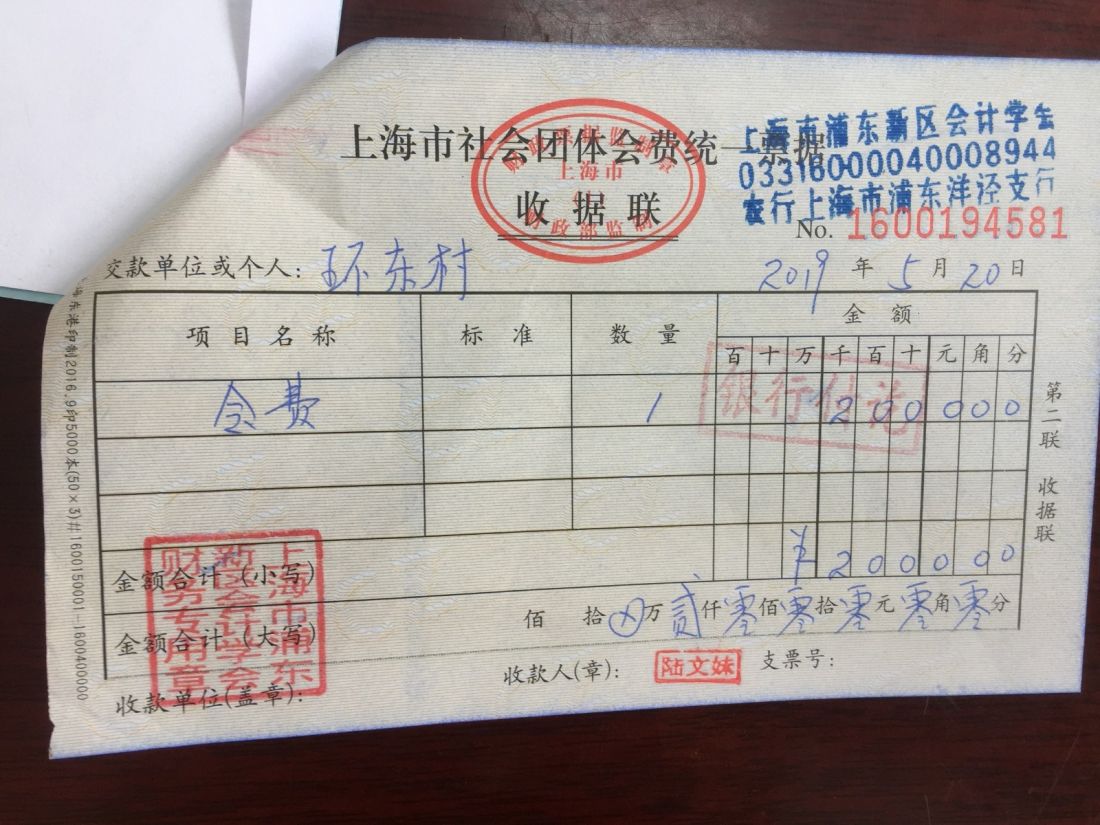 上海市社会团体会费统一票据
收据联
财政票据监制章
上海市
财政部监制
上海市浦东新区会计学会
03316000040008944
农行上海市浦东洋泾支行
No. 1600194581
交款单位或个人：环东村 2019年5月20日
项目名称 标准 数量 金额
百十万千百十元角分
会费 1 200000
银行付讫
金额合计（小写） ¥200000
金额合计（大写） 佰 拾 ⊗万贰仟零佰零拾零元零角零分
收款单位(盖章)： 收款人(章)： 陆文妹 支票号：
上海市浦东新区会计学会财务专用章
第二联 收据联
东港印制2016.9印5000本(50×3)#1600150001-1600400000